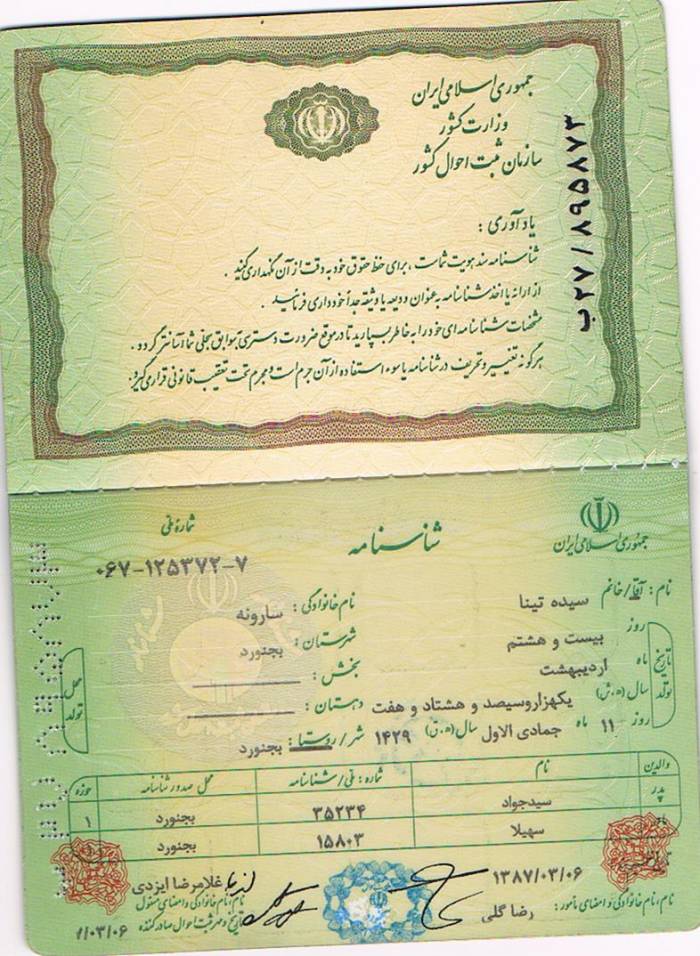 جمهوری اسلامی ایران
وزارت کشور
سازمان ثبت احوال کشور
ب ۲۷/۸۹۵۸۷۳
یادآوری :
شناسنامه سند هویت شماست ، برای حفظ حقوق خود به دقت از آن نگهداری کنید .
از ارائه یا اخذ شناسنامه به عنوان ودیعه یا وثیقه جداً خودداری فرمائید .
مشخصات شناسنامه ای خود را به خاطر بسپارید تا در موقع ضرورت دسترسی به سوابق سجلی شما آسانتر گردد .
هر گونه تغییر و تحریف در شناسنامه یا سوء استفاده از آن جرم است و مجرم تحت تعقیب قانونی قرار می گیرد .
جمهوری اسلامی ایران
شناسنامه
شماره ملی
۰۶۷-۱۲۵۳۷۲-۷
نام : آقا/خانم سیده تینا
نام خانوادگی : سارونه
تاریخ تولد
روز بیست و هشتم
ماه اردیبهشت
سال (ه.ش) یکهزاروسیصد و هشتاد و هفت
روز ۱۱ ماه جمادی الاول سال (ه.ق) ۱۴۲۹
محل تولد
شهرستان : بجنورد
بخش :
دهستان :
شهر/روستا : بجنورد
والدین نام شماره : ملی/شناسنامه محل صدور شناسنامه حوزه
پدر سیدجواد ۳۵۲۳۴ بجنورد ۱
سهیلا ۱۵۸۰۳ بجنورد
۱۳۸۷/۰۳/۰۶
نام، نام خانوادگی و امضای مأمور : رضا گلی
غلامرضا ایزدی
نام، نام خانوادگی و امضای مسئول
تاریخ و مهر ثبت احوال صادر کننده
/۰۳/۰۶